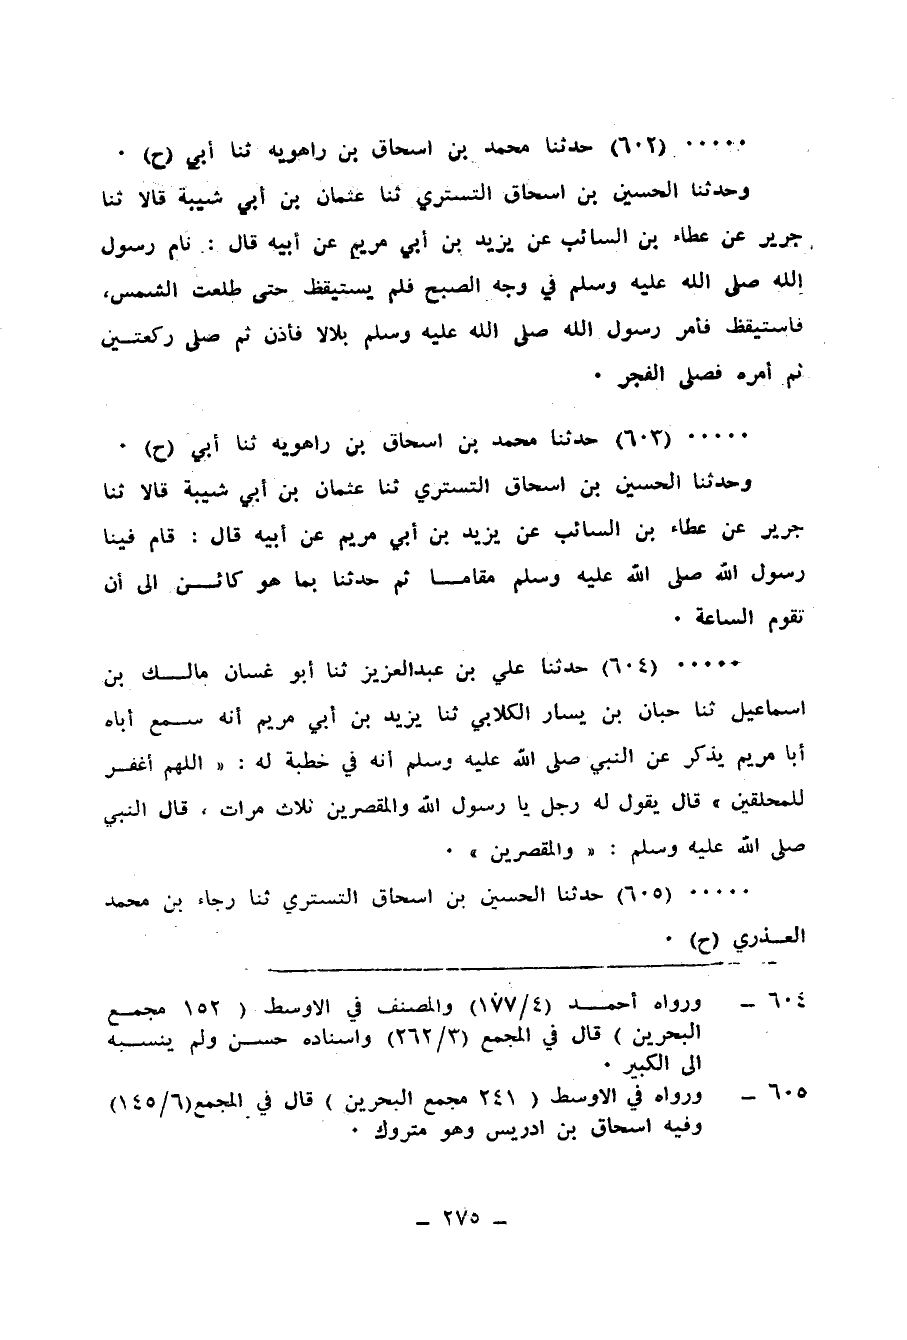 ..... (٦٠٢) حدثنا محمد بن اسحاق بن راهويه ثنا أبي (ح) .
وحدثنا الحسين بن اسحاق التستري ثنا عثمان بن أبي شيبة قالا ثنا
جرير عن عطاء بن السائب عن يزيد بن أبي مريم عن أبيه قال : نام رسول
الله صلى الله عليه وسلم في وجه الصبح فلم يستيقظ حتى طلعت الشمس،
فاستيقظ فأمر رسول الله صلى الله عليه وسلم بلالا فأذن ثم صلى ركعتـين
ثم أمره فصلى الفجر .
..... (٦٠٣) حدثنا محمد بن اسحاق بن راهويه ثنا أبي (ح) .
وحدثنا الحسين بن اسحاق التستري ثنا عثمان بن أبي شيبة قالا ثنا
جرير عن عطاء بن السائب عن يزيد بن أبي مريم عن أبيه قال : قام فينا
رسول الله صلى الله عليه وسلم مقامـا ثم حدثنا بما هو كائـن الى أن
تقوم الساعة .
..... (٦٠٤) حدثنا علي بن عبدالعزيز ثنا أبو غسان مالـك بن
اسماعيل ثنا حبان بن يسار الكلابي ثنا يزيد بن أبي مريم أنه سـمع أباه
أبا مريم يذكر عن النبي صلى الله عليه وسلم أنه في خطبة له : « اللهم أغفـر
للمحلقين » قال يقول له رجل يا رسول الله والمقصرين ثلاث مرات ، قال النبي
صلى الله عليه وسلم : « والمقصرين » .
..... (٦٠٥) حدثنا الحسين بن اسحاق التستري ثنا رجاء بن محمد
العـذري (ح) .
٦٠٤ ــ ورواه أحمـد (١٧٧/٤) والمصنف في الاوسط ( ١٥٢ مجمـع
البحرين ) قال في المجمع (٢٦٢/٣) واسناده حسـن ولم ينسـبه
الى الكبير .
٦٠٥ ــ ورواه في الاوسط ( ٢٤١ مجمع البحرين ) قال في المجمع(١٤٥/٦)
وفيه اسحاق بن ادريس وهو متروك .
ــ ٢٧٥ ــ